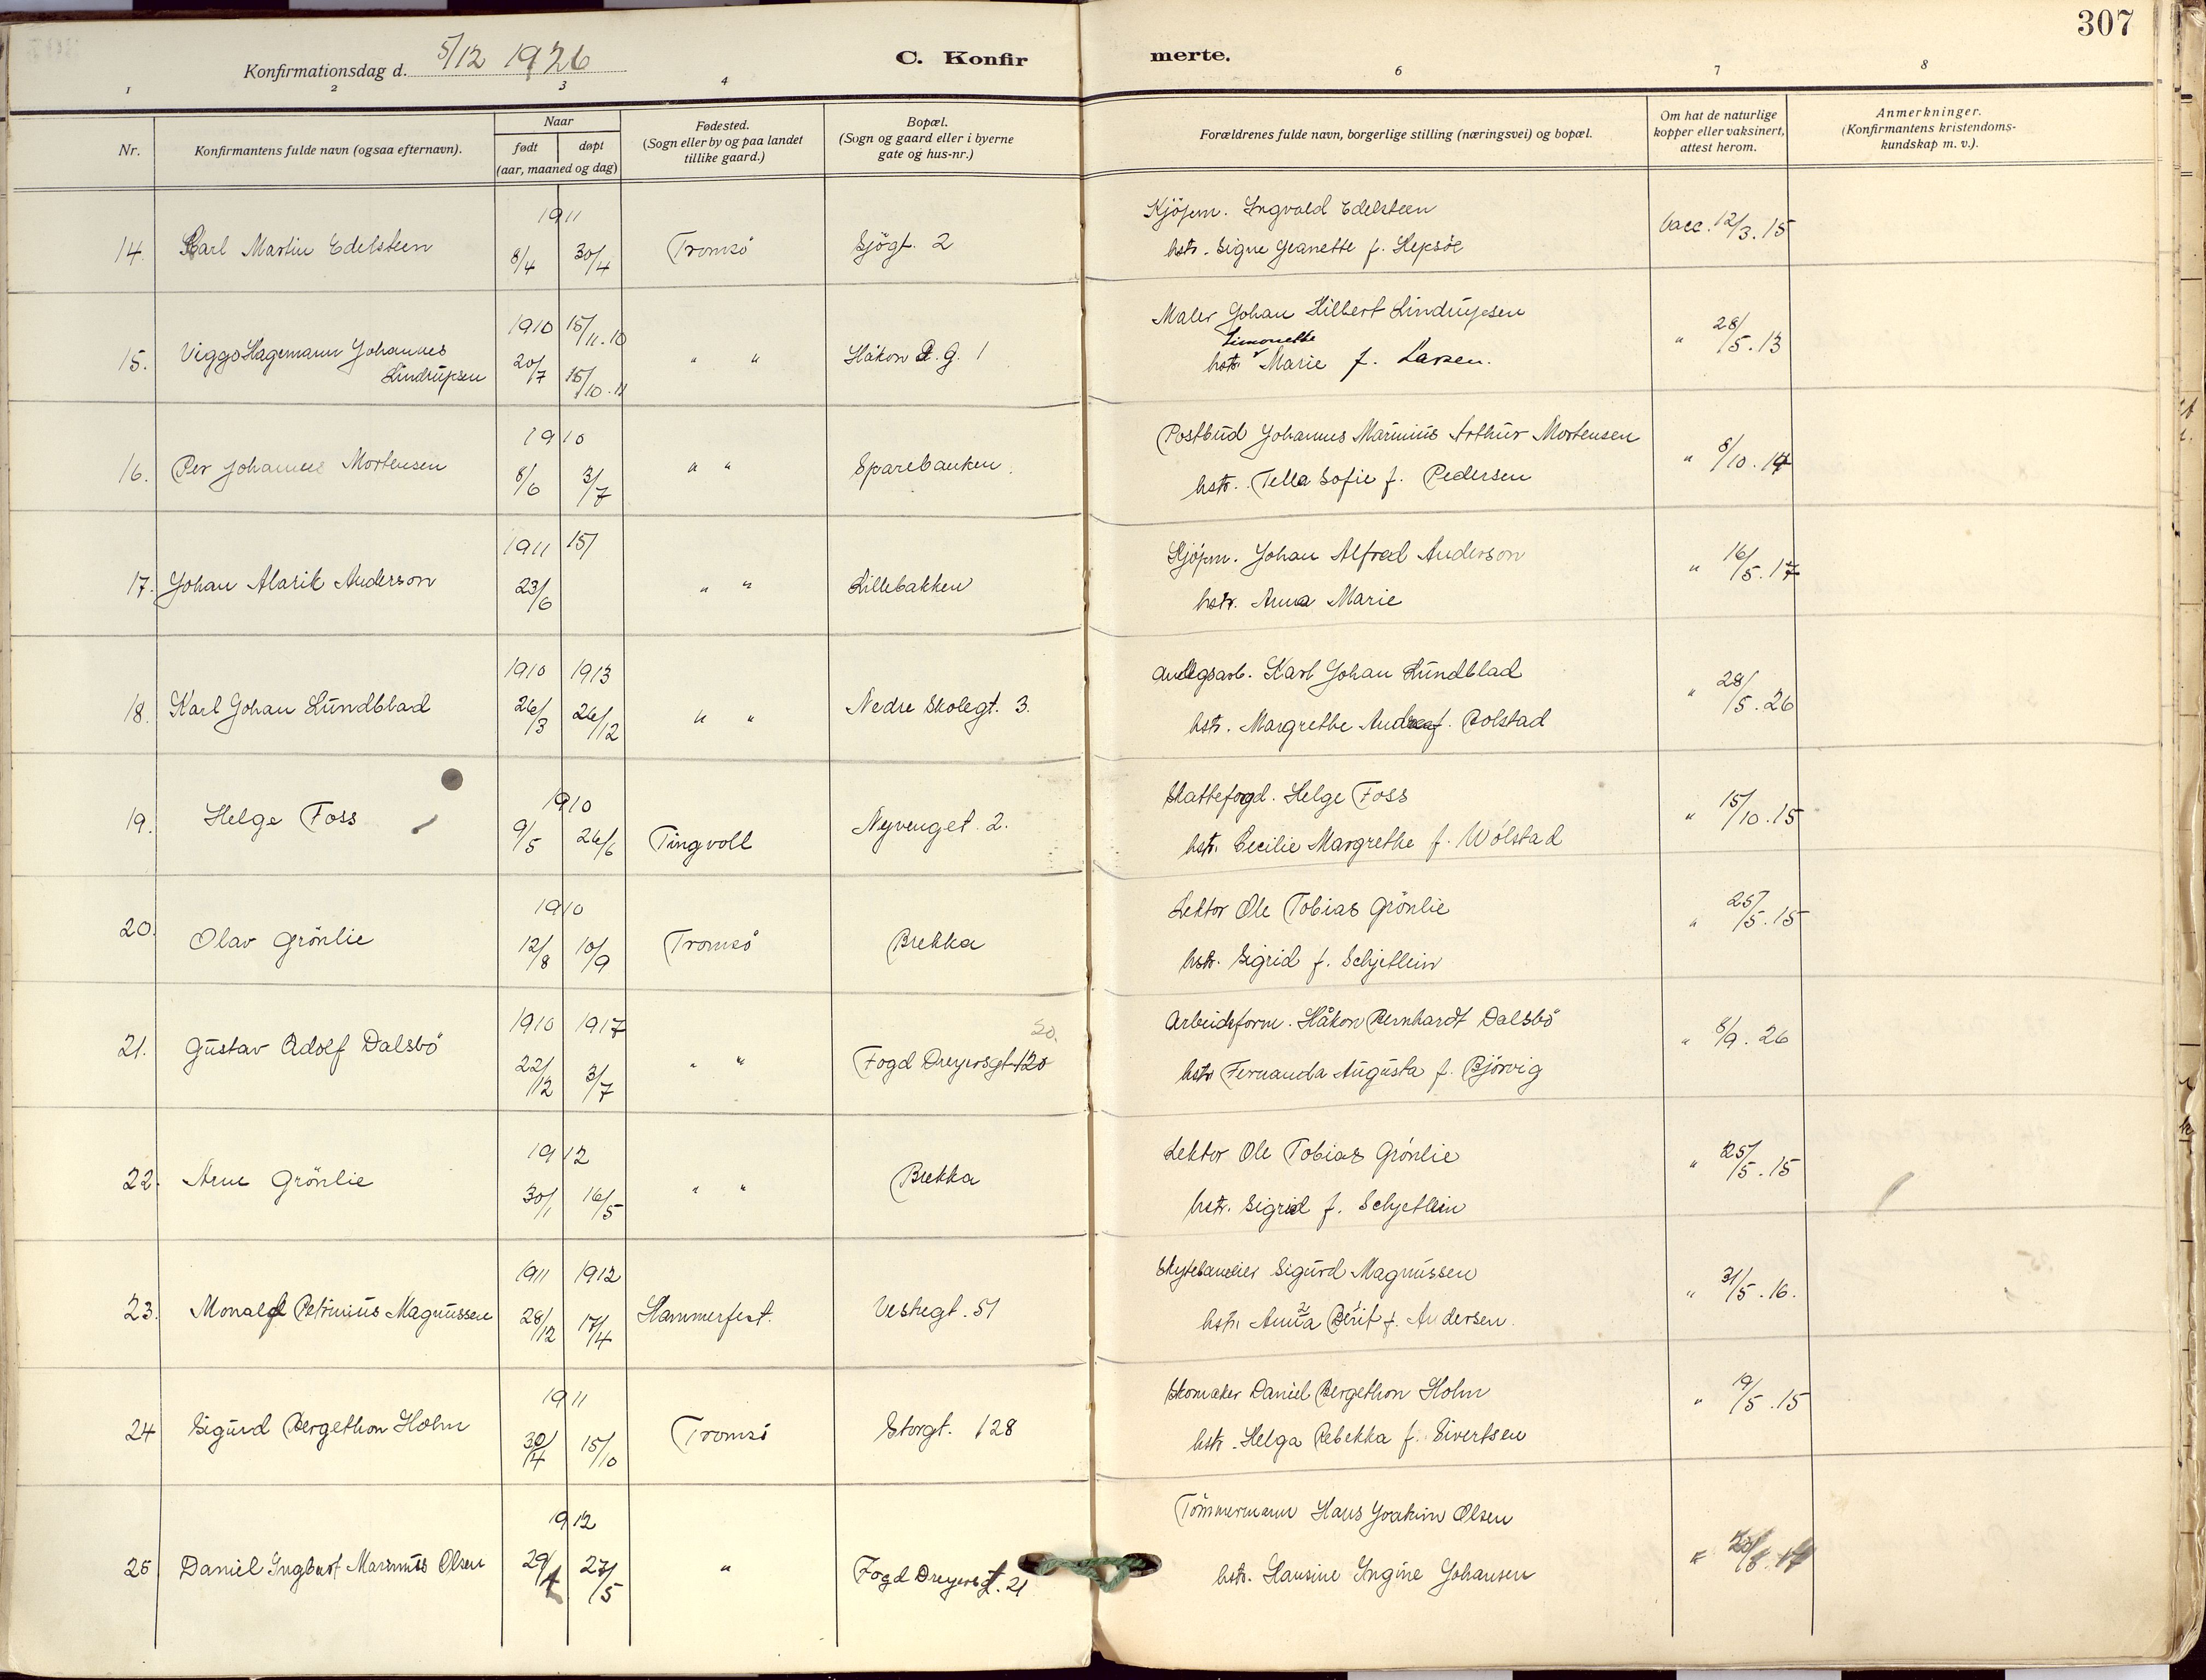 307
Konfirmationsdag d. 5/12 1926
C. Konfirmerte.
1 2 3 4 6 7 8
Nr.
Konfirmantens fulde navn (ogsaa efternavn).
Naar
født døpt
(aar, maaned og dag)
Fødested.
(Sogn eller by og paa landet
tillike gaard.)
Bopæl.
(Sogn og gaard eller i byerne
gate og hus-nr.)
Forældrenes fulde navn, borgerlige stilling (næringsvei) og bopæl.
Om hat de naturlige
kopper eller vaksinert,
attest herom.
Anmerkninger.
(Konfirmantens kristendoms-
kundskap m. v.).
1911
14. Karl Martin Edelsteen 8/4 30/4 Tromsö Sjögt. 2
Kjöpm. Ingvald Edelsteen
hstr. Signe Jeanette f. Hepsöe
Vacc. 12/3. 15
1910 15/11.10
15. Viggo Hagemann Johannes
Lindrupsen 20/7 15/10.11 " " Håkon d. G. 1
Maler Johan Hilbert Lindrupsen
Simonette
hstr. Marie f. Larsen.
" 28/5. 13
1910
16. Per Johannes Mortensen 8/6 3/7 " " Sparebanken.
Postbud Johannes Marinius Arthur Mortensen
hstr. Tella Sofie f. Pedersen
" 8/10. 14
1911 15/
17. Johan Alarik Anderson 23/6 " " Lillebakken
Kjöpm. Johan Alfred Anderson
hstr. Anna Marie
" 16/5. 17
1910 1913
18. Karl Johan Lundblad 26/3 26/12 " " Nedre Skolegt. 3.
Anlegsarb. Karl Johan Lundblad
hstr. Margrethe Andrea f. Bolstad
" 28/5. 26
1910
19. Helge Foss 9/5 26/6 Tingvoll Nyvenget. 2.
Skattefogd. Helge Foss
hstr. Cecilie Margrethe f. Wölstad
" 15/10. 15
1910
20. Olav Grönlie 12/8 10/9 Tromsö Brekka
Lektor Ole Tobias Grönlie
hstr. Sigrid f. Schjetlein
" 25/5. 15
1910 1917
20.
21. Gustav Adolf Dalsbö 22/12 3/7 " " Fogd Dreyersgt 120
Arbeidsform. Håkon Bernhardt Dalsbö
hstr Fernanda Augusta f. Björvig
" 8/9. 26
1912
22. Arne Grönlie 30/1 16/5 " " Brekka
Lektor Ole Tobias Grönlie
hstr. Sigrid f. Schjetlein
" 25/5. 15
1911 1912
23. Monalf Petrinius Magnussen 28/12 17/4 Hammerfest. Vestregt. 51
Sigurd Magnussen
hstr. Anna Berit f. Andersen.
" 31/5. 16.
1911
24 Sigurd Bergethon Holm 30/4 15/10 Tromsö Storgt. 128
Skomaker Daniel Bergethon Holm
hstr. Helga Rebekka f. Sivertsen
" 19/5. 15
1912
25 Daniel Ingbert Marinus Olsen 29/4 27/5 " Fogd Dreyersgt. 21
Tömmermann Hans Joakim Olsen
hstr. Hansine Ingine Johansen
"